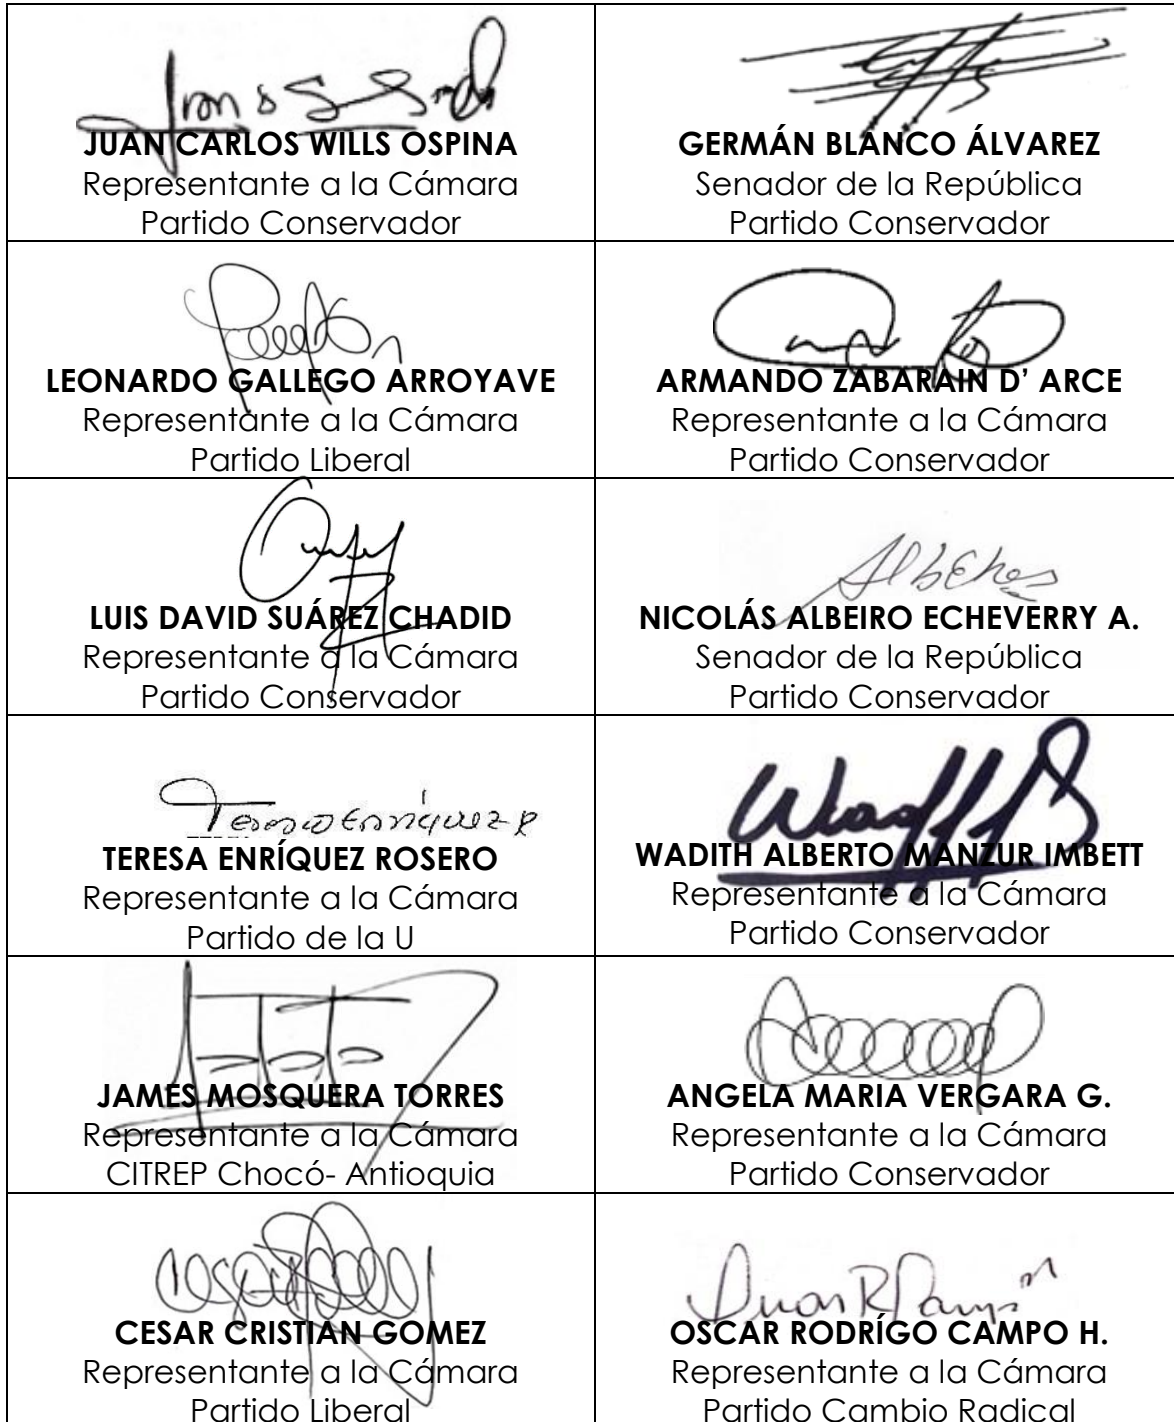 JUAN CARLOS WILLS OSPINA
Representante a la Cámara
Partido Conservador
GERMÁN BLANCO ÁLVAREZ
Senador de la República
Partido Conservador
LEONARDO GALLEGO ARROYAVE
Representante a la Cámara
Partido Liberal
ARMANDO ZABARAIN D’ ARCE
Representante a la Cámara
Partido Conservador
LUIS DAVID SUÁREZ CHADID
Representante a la Cámara
Partido Conservador
NICOLÁS ALBEIRO ECHEVERRY A.
Senador de la República
Partido Conservador
Teresa Enríquez R
TERESA ENRÍQUEZ ROSERO
Representante a la Cámara
Partido de la U
WADITH ALBERTO MANZUR IMBETT
Representante a la Cámara
Partido Conservador
JAMES MOSQUERA TORRES
Representante a la Cámara
CITREP Chocó- Antioquia
ANGELA MARIA VERGARA G.
Representante a la Cámara
Partido Conservador
CESAR CRISTIAN GOMEZ
Representante a la Cámara
Partido Liberal
OSCAR RODRÍGO CAMPO H.
Representante a la Cámara
Partido Cambio Radical